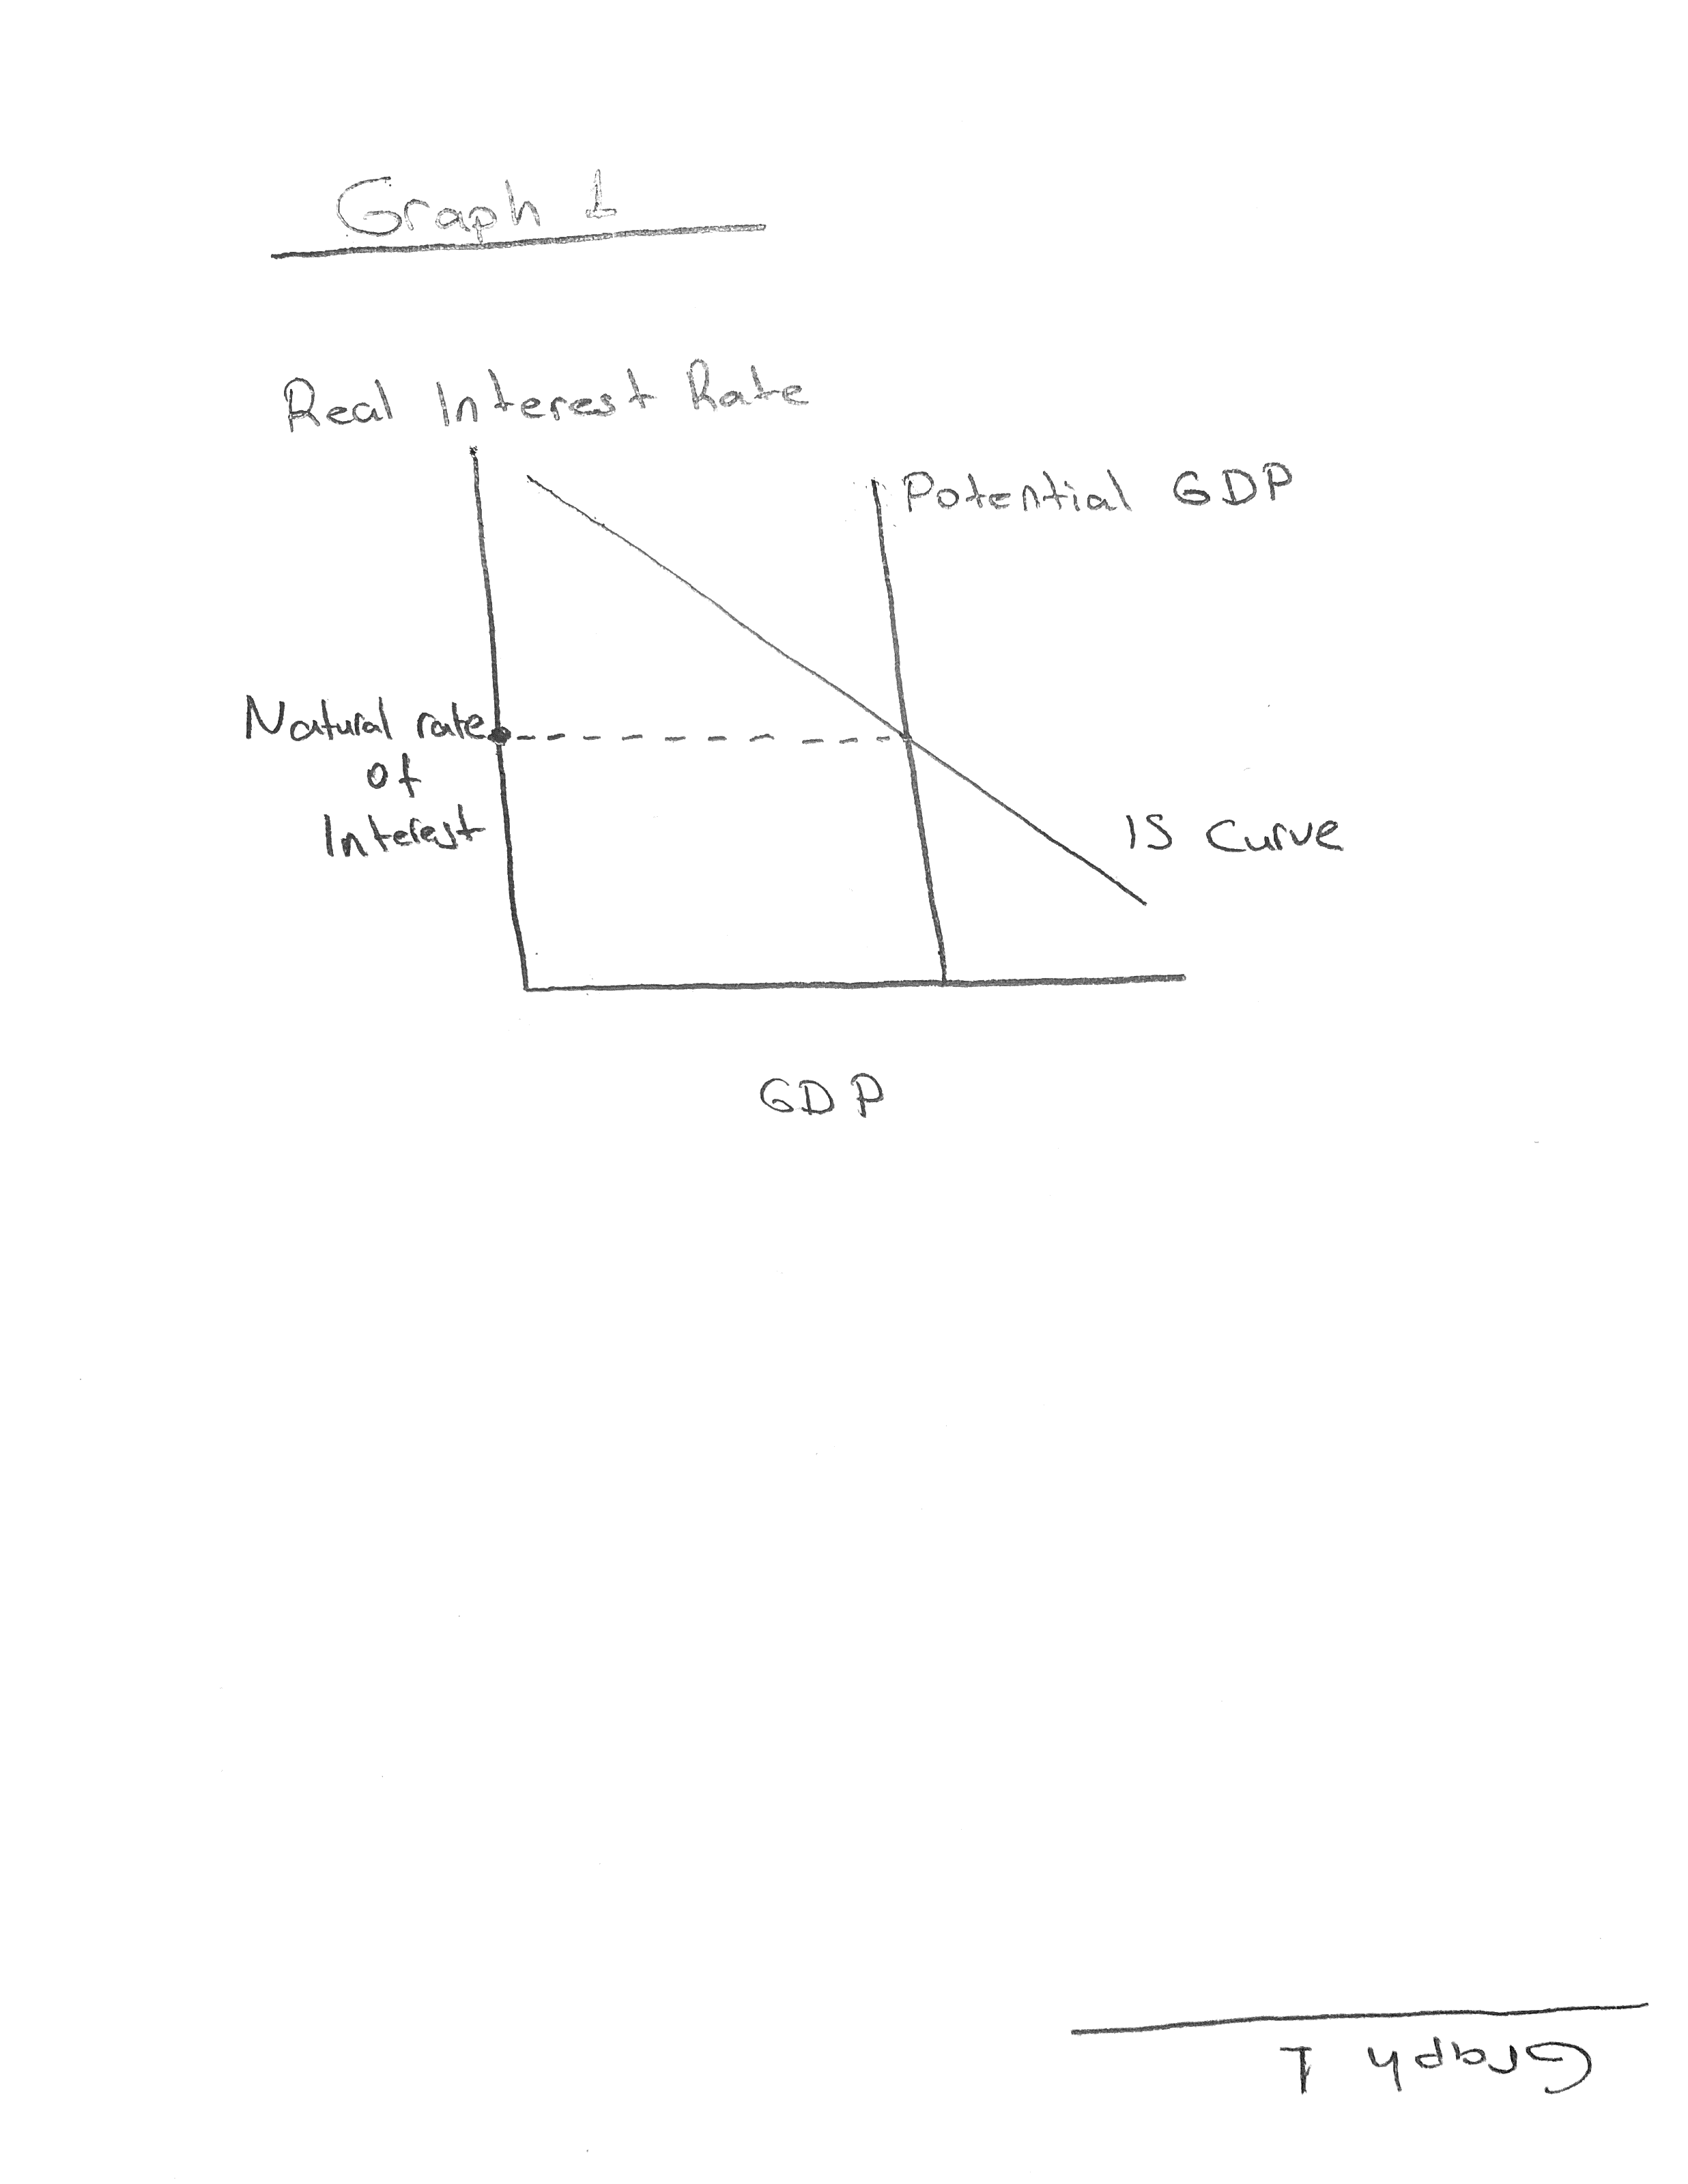 Graph 1
Real Interest Rate
Potential GDP
Natural rate
of
Interest
IS Curve
GDP
Graph 1